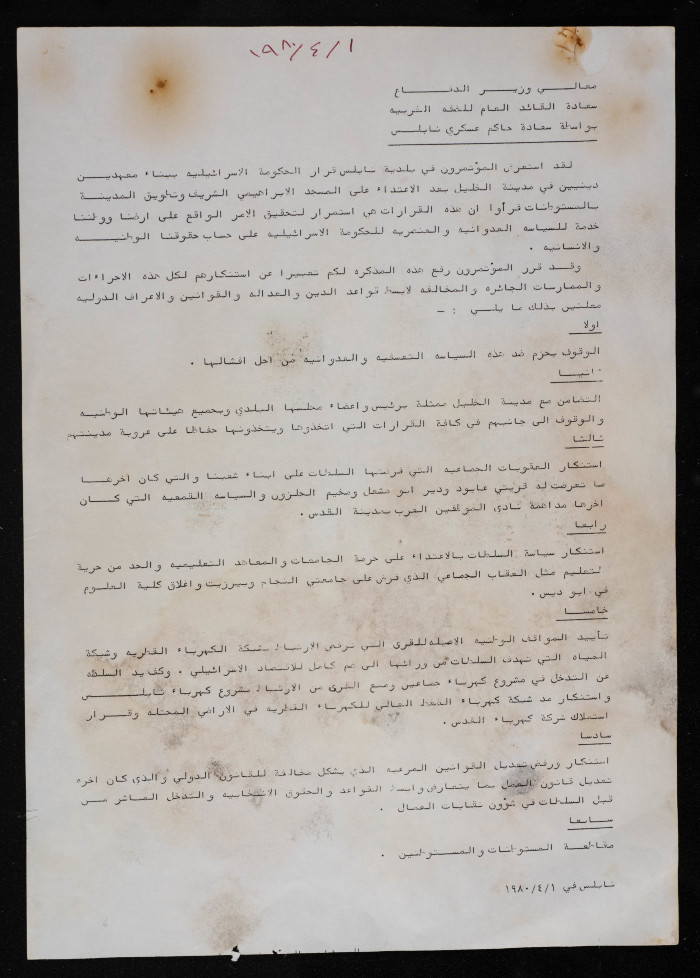 ١٩٨٠/٤/١
معالي وزير الدفاع
سعادة القائد العام للضفه الغربيه
بواسطة سعادة حاكم عسكري نابلس
لقد استعرض المؤتمرون في بلدية نابلس قرار الحكومة الاسرائيليه ببناء معهدين
دينيين في مدينة الخليل بعد الاعتداء على المسجد الابراهيمي الشريف وتطويق المدينة
بالمستوطنات فرأوا ان هذه القرارات هي استمرار لتحقيق الامر الواقع على ارضنا ووطننا
خدمة للسياسه العدوانيه والعنصريه للحكومة الاسرائيليه على حساب حقوقنا الوطنيه
والانسانيه .
وقد قرر المؤتمرون رفع هذه المذكره لكم تعبيرا عن استنكارهم لكل هذه الاجراءات
والممارسات الجائره والمخالفه لابسط قواعد الدين والعداله والقوانين والاعراف الدوليه
معلنين بذلك ما يلي : -
اولا
الوقوف بحزم ضد هذه السياسه التعسفيه والعدوانيه من اجل افشالها .
ثانيا
التضامن مع مدينة الخليل ممثلة برئيس واعضاء مجلسها البلدي وبجميع هيئاتها الوطنيه
والوقوف الى جانبهم في كافة القرارات التي اتخذوها ويتخذونها حفاظا على عروبة مدينتهم
ثالثا
استنكار العقوبات الجماعيه التي فرضتها السلطات على ابناء شعبنا والتي كان آخرها
ما تعرضت له قريتي عابود ودير ابو مشعل ومخيم الجلزون والسياسه القمعيه التي كان
اخرها مداهمة نادى الموظفين العرب بمدينة القدس .
رابعا
استنكار سياسة السلطات بالاعتداء على حرمة الجامعات والمعاهد التعليميه والحد من حرية
التعليم مثل العقاب الجماعي الذي فرض على جامعتي النجاح وبيرزيت واغلاق كلية العلوم
في ابو ديس .
خامسا
تأييد المواقف الوطنيه الاصيله للقرى التي ترفض الارتباط بشبكة الكهرباء القطريه وشبكة
المياه التي تهدف السلطات من ورائها الى ضم كامل للاقتصاد الاسرائيلي . وكف يد السلطه
عن التدخل في مشروع كهرباء جماعين ومنع القرى من الارتباط بمشروع كهرباء نابلس
واستنكار مد شبكة كهرباء الضغط العالي للكهرباء القطريه في الاراضي المحتله وقرار
استملاك شركة كهرباء القدس .
سادسا
استنكار ورفض تعديل القوانين المرعيه الذي يشكل مخالفة للقانون الدولي والذي كان آخره
تعديل قانون العمل بما يتعارض وابسط القواعد والحقوق الانتخابيه والتدخل المباشر من
قبل السلطات في شؤون نقابات العمال .
سابعا
مقاطعة المستوطنات والمستوطنين .
نابلس في ١٩٨٠/٤/١